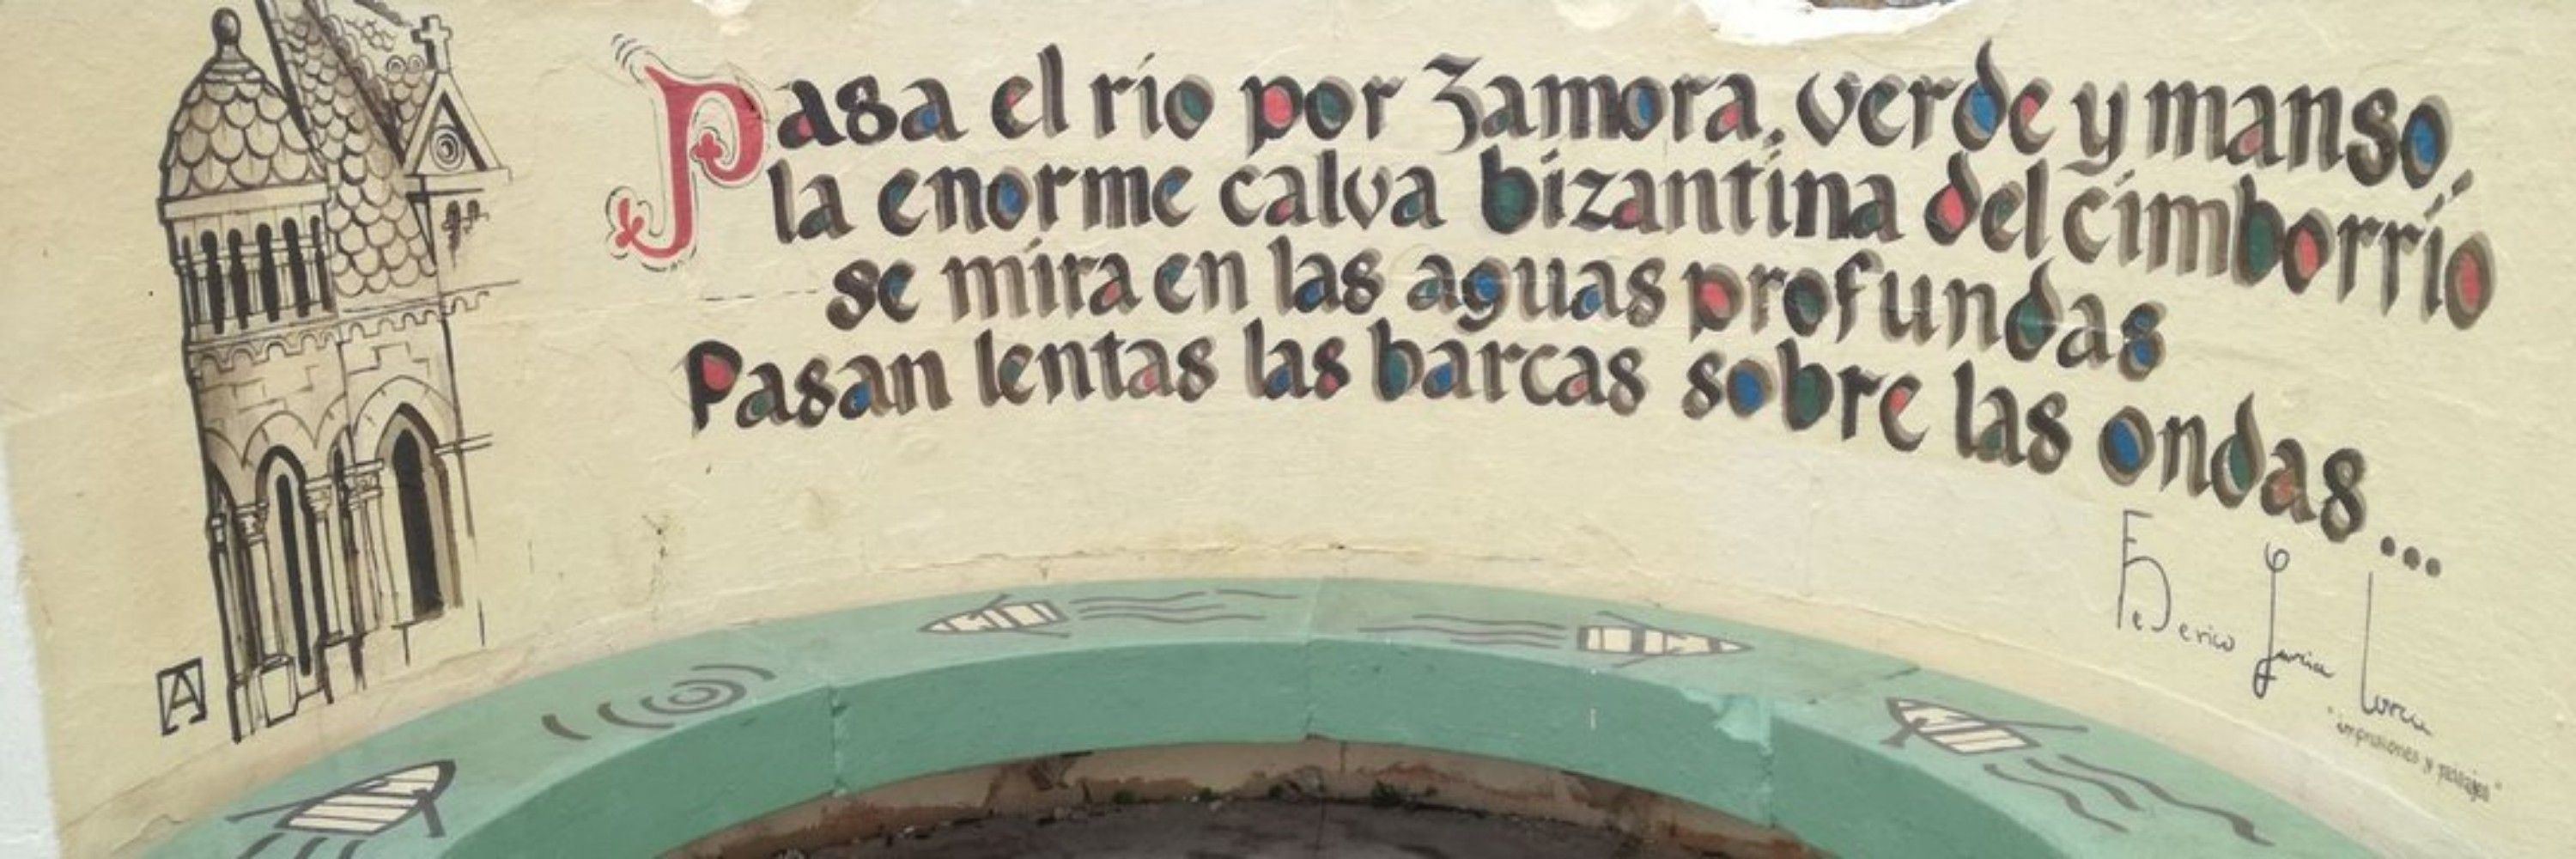 Pasa el río por Zamora, verde y manso,
la enorme calva bizantina del cimborrio
se mira en las aguas profundas
Pasan lentas las barcas sobre las ondas...
Federico García Lorca
"impresiones y paisajes"
A